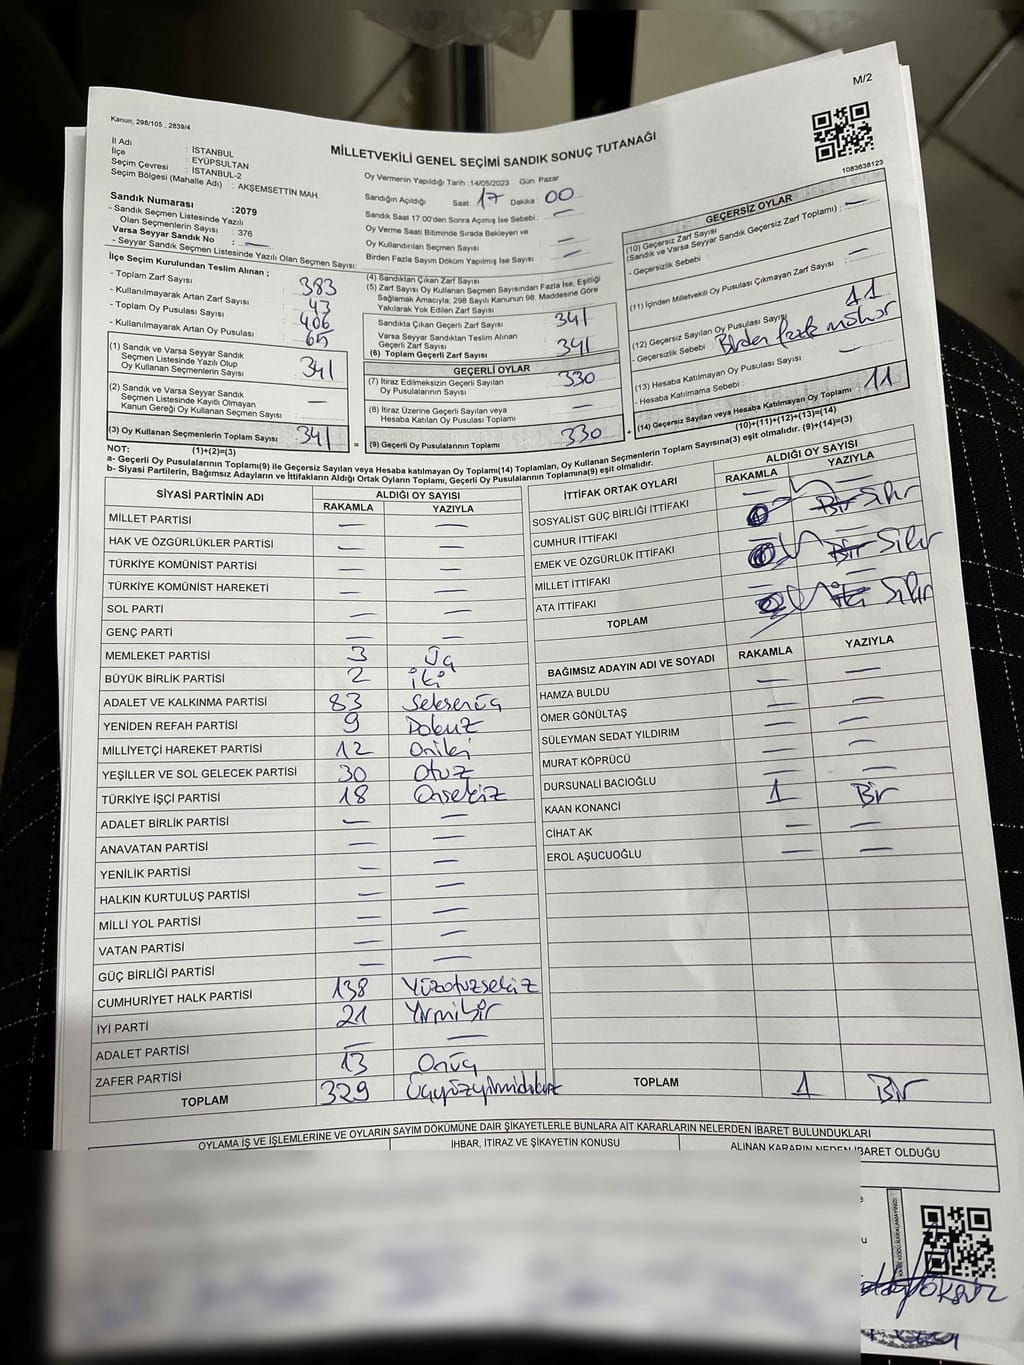 M/2
Kanun; 298/105 , 2839/4
MİLLETVEKİLİ GENEL SEÇİMİ SANDIK SONUÇ TUTANAĞI
1083638123
İl Adı : İSTANBUL
İlçe : EYÜPSULTAN
Seçim Çevresi : İSTANBUL-2
Seçim Bölgesi (Mahalle Adı) : AKŞEMSETTİN MAH.
Sandık Numarası :2079
- Sandık Seçmen Listesinde Yazılı
Olan Seçmenlerin Sayısı : 376
Varsa Seyyar Sandık No : —
- Seyyar Sandık Seçmen Listesinde Yazılı Olan Seçmen Sayısı:
Oy Vermenin Yapıldığı Tarih :14/05/2023 Gün: Pazar
Sandığın Açıldığı Saat : 17 Dakika : 00
Sandık Saat 17.00'den Sonra Açımış İse Sebebi : —
Oy Verme Saati Bitiminde Sırada Bekleyen ve
Oy Kullandırılan Seçmen Sayısı : —
Birden Fazla Sayım Döküm Yapılmış İse Sayısı : —
İlçe Seçim Kurulundan Teslim Alınan ;
- Toplam Zarf Sayısı : 383
- Kullanılmayarak Artan Zarf Sayısı : 43
- Toplam Oy Pusulası Sayısı : 406
- Kullanılmayarak Artan Oy Pusulası : 65
(1) Sandık ve Varsa Seyyar Sandık
Seçmen Listesinde Yazılı Olup
Oy Kullanan Seçmenlerin Sayısı : 341
(2) Sandık ve Varsa Seyyar Sandık
Seçmen Listesinde Kayıtlı Olmayan
Kanun Gereği Oy Kullanan Seçmen Sayısı : —
(3) Oy Kullanan Seçmenlerin Toplam Sayısı : 341
(1)+(2)=(3)
(4) Sandıktan Çıkan Zarf Sayısı :
(5) Zarf Sayısı Oy Kullanan Seçmen Sayısından Fazla İse, Eşitliği
Sağlamak Amacıyla; 298 Sayılı Kanunun 98. Maddesine Göre
Yakılarak Yok Edilen Zarf Sayısı :
Sandıkta Çıkan Geçerli Zarf Sayısı : 341
Varsa Seyyar Sandıktan Teslim Alınan
Geçerli Zarf Sayısı :
(6) Toplam Geçerli Zarf Sayısı : 341
GEÇERLİ OYLAR
(7) İtiraz Edilmeksizin Geçerli Sayılan
Oy Pusulalarının Sayısı : 330
(8) İtiraz Üzerine Geçerli Sayılan veya
Hesaba Katılan Oy Pusulası Toplamı : —
= (9) Geçerli Oy Pusulalarının Toplamı : 330
GEÇERSİZ OYLAR
(10) Geçersiz Zarf Sayısı
(Sandık ve Varsa Seyyar Sandık Geçersiz Zarf Toplamı) : —
- Geçersizlik Sebebi :
(11) İçinden Milletvekili Oy Pusulası Çıkmayan Zarf Sayısı : —
(12) Geçersiz Sayılan Oy Pusulası Sayısı : 11
- Geçersizlik Sebebi : Birden fazla mühür
(13) Hesaba Katılmayan Oy Pusulası Sayısı : —
- Hesaba Katılmama Sebebi :
+ (14) Geçersiz Sayılan veya Hesaba Katılmayan Oy Toplamı : 11
(10)+(11)+(12)+(13)=(14)
NOT:
a- Geçerli Oy Pusulalarının Toplamı(9) ile Geçersiz Sayılan veya Hesaba katılmayan Oy Toplamı(14) Toplamları, Oy Kullanan Seçmenlerin Toplam Sayısına(3) eşit olmalıdır. (9)+(14)=(3)
b- Siyasi Partilerin, Bağımsız Adayların ve İttifakların Aldığı Ortak Oyların Toplamı, Geçerli Oy Pusulalarının Toplamına(9) eşit olmalıdır.
SİYASİ PARTİNİN ADI ALDIĞI OY SAYISI
RAKAMLA YAZIYLA
MİLLET PARTİSI — —
HAK VE ÖZGÜRLÜKLER PARTİSİ — —
TÜRKİYE KOMÜNİST PARTİSİ — —
TÜRKİYE KOMÜNİST HAREKETİ — —
SOL PARTİ — —
GENÇ PARTİ — —
MEMLEKET PARTİSİ 3 Üç
BÜYÜK BİRLİK PARTİSİ 2 iki
ADALET VE KALKINMA PARTİSİ 83 Seksenüç
YENİDEN REFAH PARTİSİ 9 Dokuz
MİLLİYETÇİ HAREKET PARTİSİ 12 Oniki
YEŞİLLER VE SOL GELECEK PARTİSİ 30 Otuz
TÜRKİYE İŞÇİ PARTİSİ 18 Onsekiz
ADALET BİRLİK PARTİSİ — —
ANAVATAN PARTİSİ — —
YENİLİK PARTİSİ — —
HALKIN KURTULUŞ PARTİSİ — —
MİLLİ YOL PARTİSİ — —
VATAN PARTİSİ — —
GÜÇ BİRLİĞİ PARTİSİ — —
CUMHURİYET HALK PARTİSİ 138 Yüzotuzsekiz
İYİ PARTİ 21 Yirmibir
ADALET PARTİSİ — —
ZAFER PARTİSİ 13 Onüç
TOPLAM 329 Üçyüzyirmidokuz
İTTİFAK ORTAK OYLARI ALDIĞI OY SAYISI
RAKAMLA YAZIYLA
SOSYALİST GÜÇ BİRLİĞİ İTTİFAKI — —
CUMHUR İTTİFAKI Bir Sıfır
EMEK VE ÖZGÜRLÜK İTTİFAKI — —
MİLLET İTTİFAKI Bir Sıfır
ATA İTTİFAKI — —
TOPLAM İki Sıfır
BAĞIMSIZ ADAYIN ADI VE SOYADI RAKAMLA YAZIYLA
HAMZA BULDU — —
ÖMER GÖNÜLTAŞ — —
SÜLEYMAN SEDAT YILDIRIM — —
MURAT KÖPRÜCÜ — —
DURSUNALİ BACIOĞLU — —
KAAN KONANCİ 1 Bir
CİHAT AK — —
EROL AŞUCUOĞLU — —
TOPLAM 1 Bir
OYLAMA İŞ VE İŞLEMLERİNE VE OYLARIN SAYIM DÖKÜMÜNE DAİR ŞİKAYETLERLE BUNLARA AİT KARARLARIN NELERDEN İBARET BULUNDUKLARI
İHBAR, İTİRAZ VE ŞİKAYETİN KONUSU ALINAN KARARIN NEDEN İBARET OLDUĞU